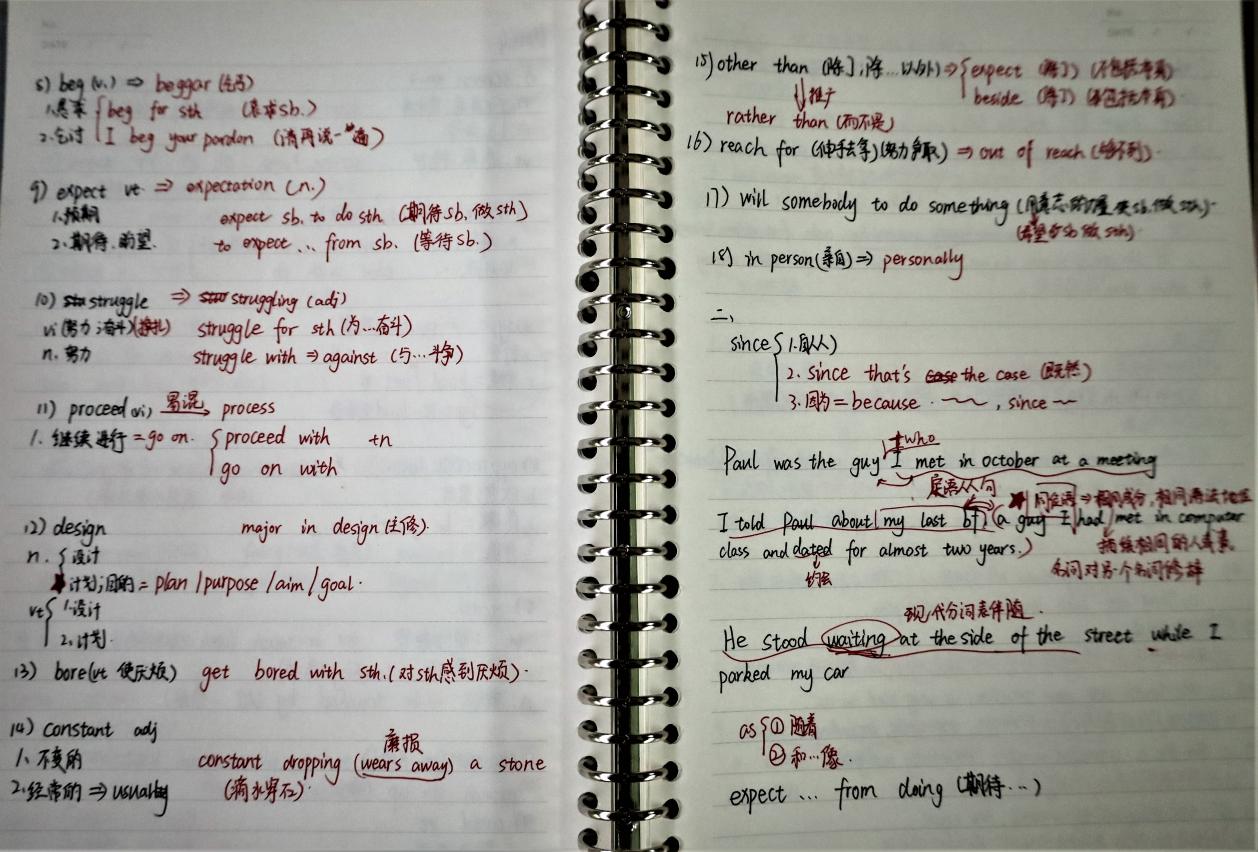 8) beg (vi.) ⇒ beggar (乞丐)
1.恳求 beg for sth (恳求sb.)
2.乞讨 I beg your pardon (请再说一遍)
9) expect vt ⇒ expectation (n.)
1.预期 expect sb. to do sth (期待sb. 做sth)
2.期待.盼望. to expect ... from sb. (等待sb.)
10) struggle ⇒ struggling (adj)
vi (努力;奋斗)(挣扎) struggle for sth (为...奋斗)
n. 努力 struggle with ⇒ against (与...斗争)
11) proceed (vi) 易混 process
1. 继续进行 = go on. proceed with +n
go on with
12) design major in design (主修).
n. 设计
计划;目的 = plan / purpose / aim / goal.
vt 1.设计
2.计划.
13) bore (vt 使厌烦) get bored with sth. (对sth感到厌烦).
14) constant adj
磨损
1. 不变的 constant dropping (wears away) a stone
2.经常的 ⇒ usually (滴水穿石).
15) other than (除了;除...以外) ⇒ expect (除了) (不包括本身)
推广 beside (除了) (包括本身)
rather than (而不是)
16) reach for (伸手去拿)(努力争取) ⇒ out of reach (够不到).
17) will somebody to do something (使sb.做sth).
(希望sb做sth)
18) in person (亲自) ⇒ personally
二、
since 1.自从)
2. since that's the case (既然)
3.因为 = because. , since
who
Paul was the guy I met in october at a meeting
定语从句 同位语 ⇒ 相同成分,相同语法地位
I told Paul about my last bf. (a guy I had met in computer
class and dated for almost two years.)
约会 名词对另一个名词修辞
现代分词表伴随.
He stood waiting at the side of the street while I
parked my car
as ① 随着
② 和...像.
expect ... from doing (期待...)